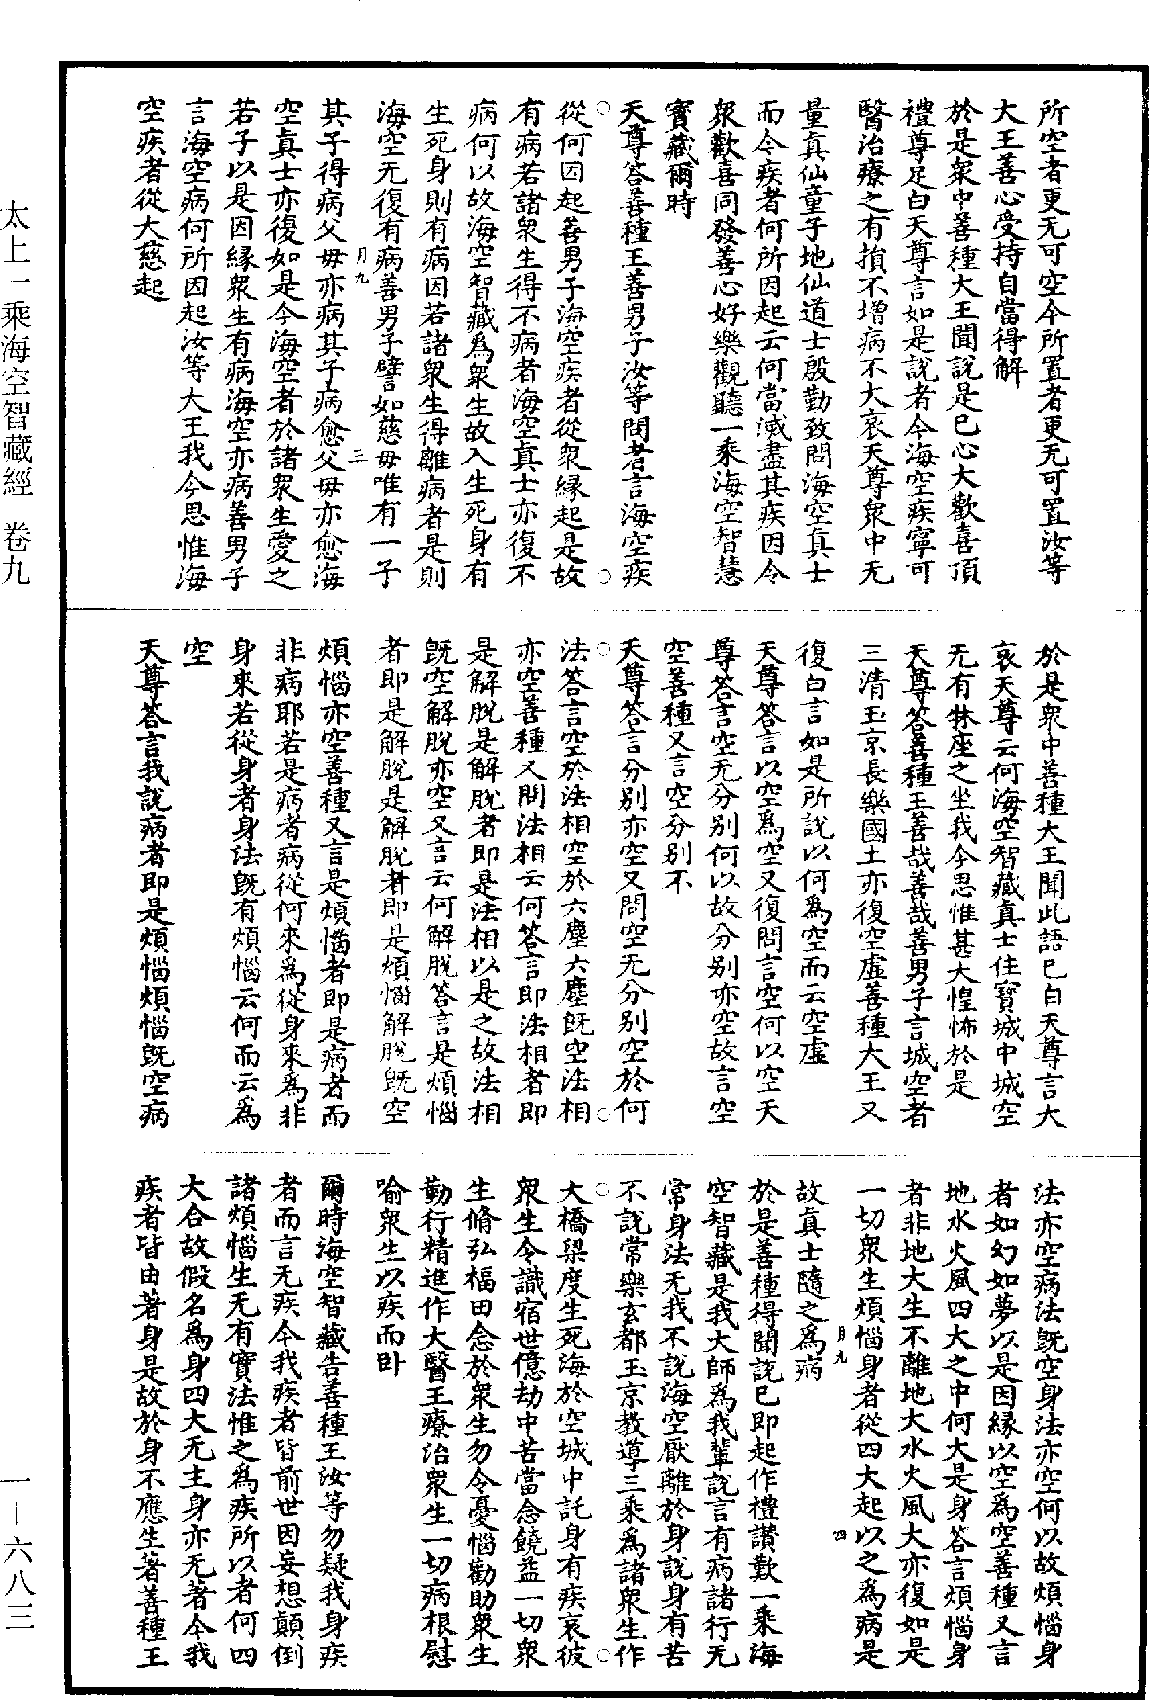 所空者更无可空今所置者更无可置汝等
大王善心受持自當得解
於是衆中善種大王聞說是已心大歡喜頂
禮尊足白天尊言如是說者今海空疾寧可
醫治療之有損不增病不大哀天尊衆中无
量真仙童子地仙道士殷勤致問海空真士
而令疾者何所因起云何當滅盡其疾因令
衆歡喜同發善心好樂觀聽一乘海空智慧
寶藏爾時
天尊答善種王善男子汝等問者言海空疾
從何因起善男子海空疾者從衆緣起是故
有病若諸衆生得不病者海空真士亦復不
病何以故海空智藏為衆生故入生死身有
生死身則有病因若諸衆生得離病者是則
海空无復有病善男子譬如慈母唯有一子
月九
三
其子得病父母亦病其子病愈父母亦愈海
空真士亦復如是今海空者於諸衆生愛之
若子以是因緣衆生有病海空亦病善男子
言海空病何所因起汝等大王我今思惟海
空疾者從大慈起
於是衆中善種大王聞此語已白天尊言大
哀天尊云何海空智藏真士住寶城中城空
无有牀座之坐我今思惟甚大惶怖於是
天尊答善種王善哉善哉善男子言城空者
三清玉京長樂國土亦復空虛善種大王又
復白言如是所說以何為空而云空虛
天尊答言以空為空又復問言空何以空天
尊答言空无分別何以故分別亦空故言空
空善種又言空分別不
天尊答言分別亦空又問空无分別空於何
法答言空於法相空於六塵六塵既空法相
亦空善種又問法相云何答言即法相者即
是解脫是解脫者即是法相以是之故法相
既空解脫亦空又言云何解脫答言是煩惱
者即是解脫是解脫者即是煩惱解脫既空
煩惱亦空善種又言是煩惱者即是病者而
非病耶若是病者病從何來為從身來為非
身來若從身者身法既有煩惱云何而云為
空
天尊答言我說病者即是煩惱煩惱既空病
法亦空病法既空身法亦空何以故煩惱身
者如幻如夢以是因緣以空為空善種又言
地水火風四大之中何大是身答言煩惱身
者非地大生不離地大水火風大亦復如是
一切衆生煩惱身者從四大起以之為病是
故真士隨之為病
月九
四
於是善種得聞說已即起作禮讚歎一乘海
空智藏是我大師為我輩說言有病諸行无
常身法无我不說海空厭離於身說身有苦
不說常樂玄都玉京教導三乘為諸衆生作
大橋梁度生死海於空城中託身有疾哀彼
衆生令識宿世億劫中苦當念饒益一切衆
生脩弘福田念於衆生勿令憂惱勸助衆生
勤行精進作大醫王療治衆生一切病根慰
喻衆生以疾而卧
爾時海空智藏告善種王汝等勿疑我身疾
者而言无疾今我疾者皆前世因妄想顛倒
諸煩惱生无有實法惟之為疾所以者何四
大合故假名為身四大无主身亦无著今我
疾者皆由著身是故於身不應生著善種王
太上一乘海空智藏經 卷九
一—六八三